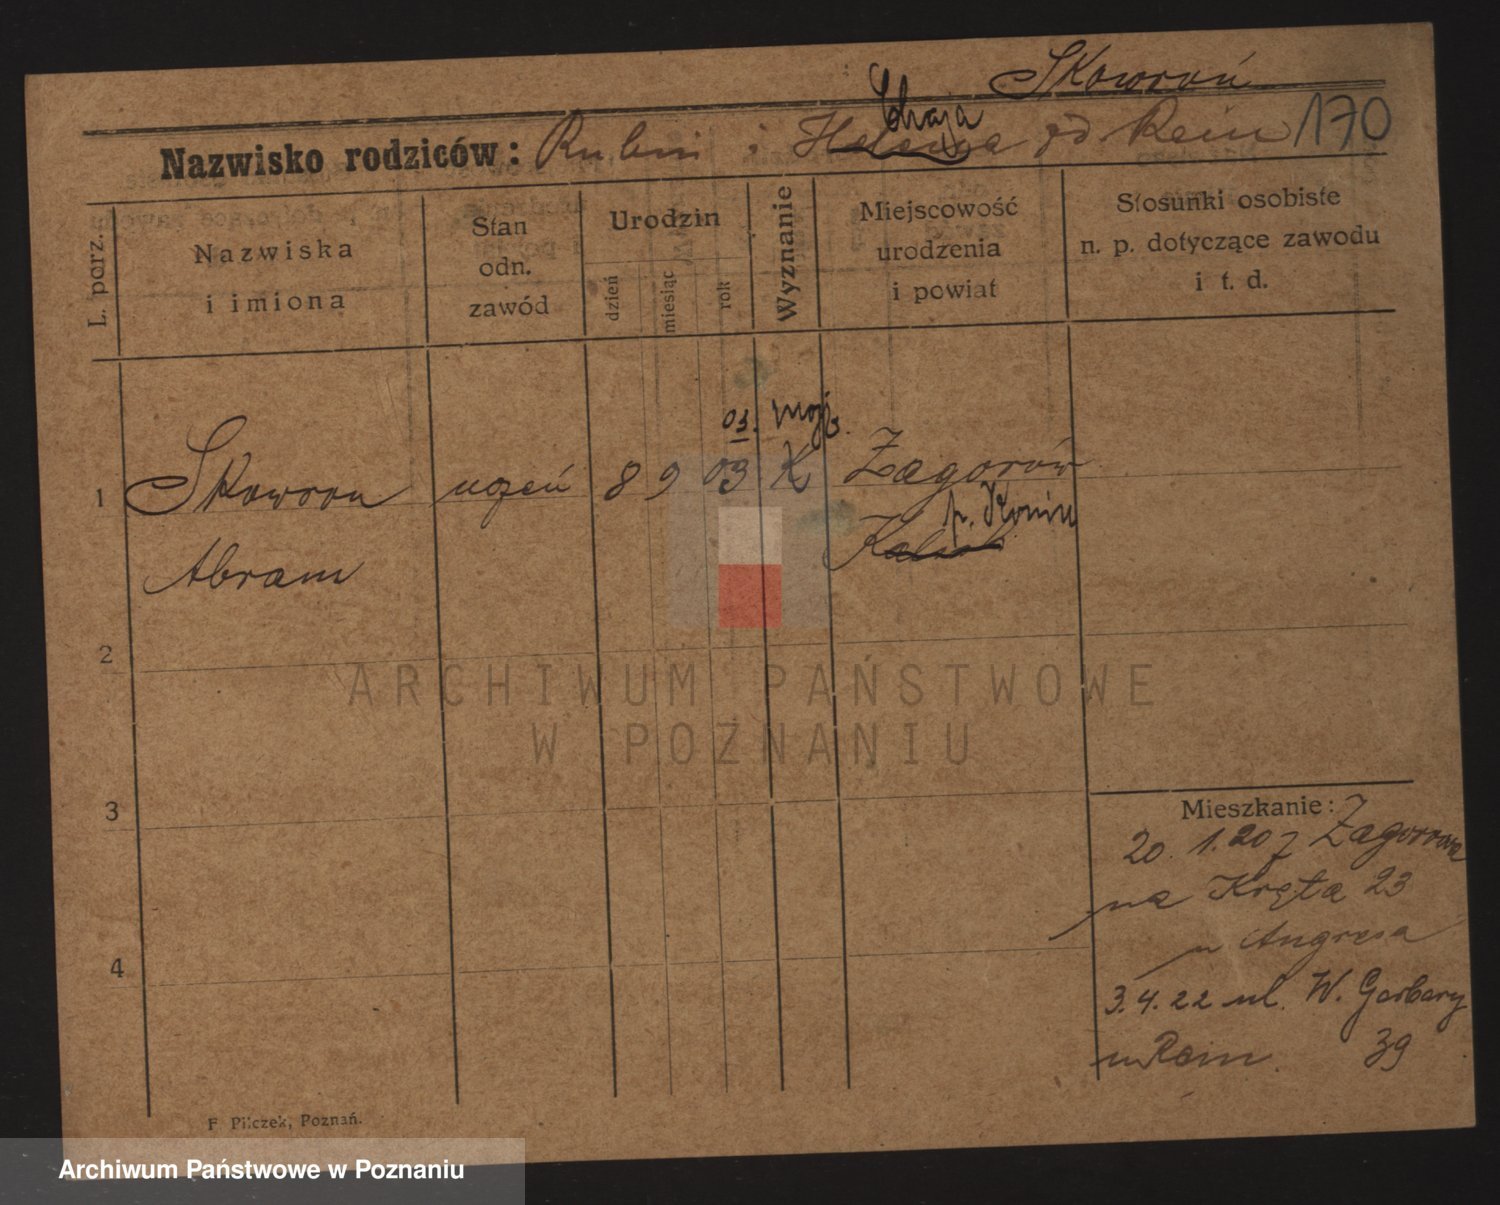 Skowroń
170
Chaja
Nazwisko rodziców: Rubin i Helena od Rein
L. porz.
Nazwiska
i imiona
Stan
odn.
zawód
Urodzin
dzień
miesiąc
rok
Wyznanie
Miejscowość
urodzenia
i powiat
Stosunki osobiste
n. p. dotyczące zawodu
i t. d.
03. mojż.
1 Skowron uczeń 8 9 03 K Zagorów
p. Konin
Abram
2
ARCHIWUM PAŃSTWOWE
W POZNANIU
3
4
Mieszkanie:
20. 1. 20 z Zagorowa
na Kręta 23
u Angresa
3. 4. 22 ul. W. Garbary
u Rein 39
F. Pilczek, Poznań.
Archiwum Państwowe w Poznaniu